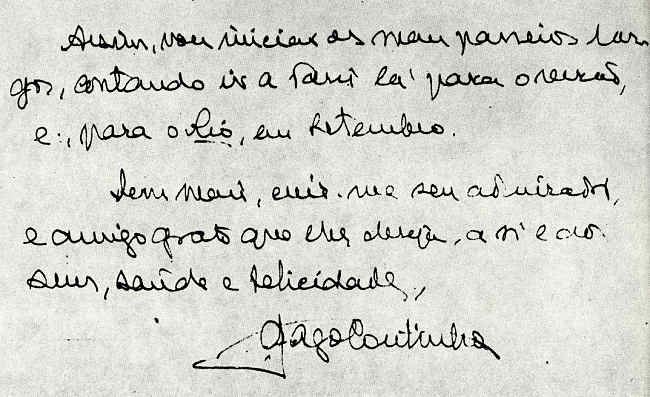 Assim, vou iniciar os meus passeios lar-
gos, contando ir a Paris lá para o verão,
e, para o Rio, em Setembro.
Sem mais, creia-me seu admirador,
e amigo grato que lhe deseja, a si e aos
seus, saúde e felicidades,
Gago Coutinho